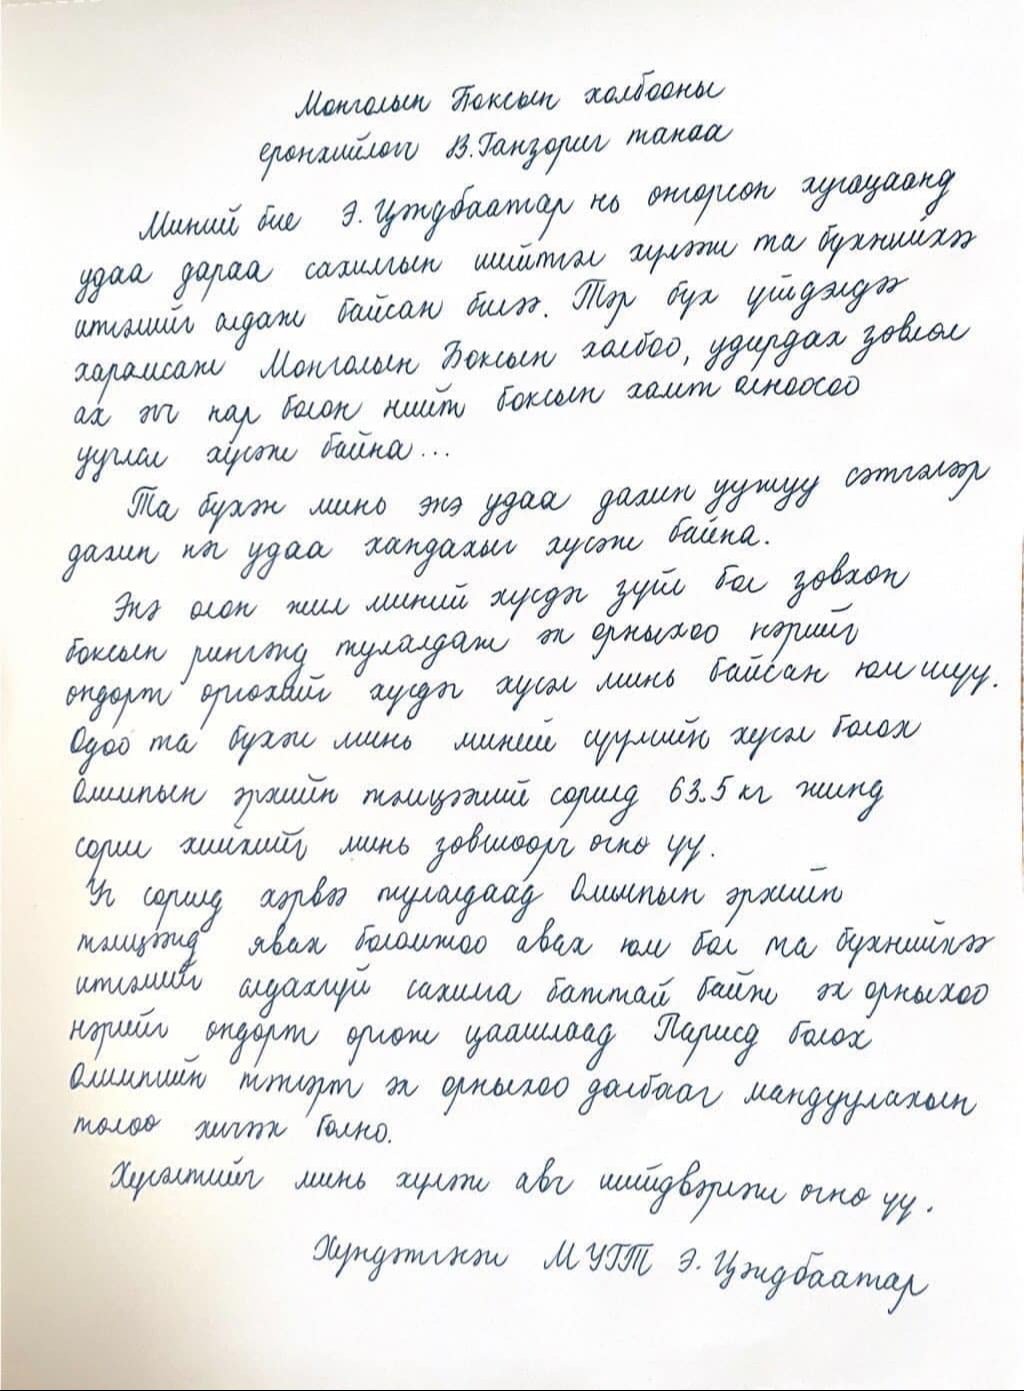 Монголын Боксын холбооны
ерөнхийлөгч В.Ганзориг танаа
Миний бие Э.Цэндбаатар нь өнгөрсөн хугацаанд
удаа дараа сахилгын шийтгэл хүлээж та бүхнийхээ
итгэлийг алдаж байсан билээ. Тэр бүх үйлдэлдээ
харамсаж Монголын Боксын холбоо, удирдах зөвлөл
ах эгч нар болон нийт боксын хамт олноосоо
уучлал хүсэж байна...
Та бүхэн минь энэ удаа дахин уужуу сэтгэлээр
дахин нэг удаа хандахыг хүсэж байна.
Энэ олон жил миний хүсдэг зүйл бол зөвхөн
боксын рингэнд тулалдаж эх орныхоо нэрийг
өндөрт өргөхийг хүсдэг хүсэл минь байсан юм шүү.
Одоо та бүхэн минь миний сүүлийн хүсэл болох
Олимпын эрхийн тэмцээний сорилд 63.5 кг жинд
сорил хийхийг минь зөвшөөрч өгнө үү.
Уг сорилд хэрвээ тулалдаад Олимпын эрхийн
тэмцээнд явах боломжоо авах юм бол та бүхнийхээ
итгэлийг алдахгүй сахилга баттай байж эх орныхоо
нэрийг өндөрт өргөж цаашлаад Парист болох
Олимпийн тэнгэрт эх орныхоо далбааг мандуулахын
төлөө хичээх болно.
Хүсэлтийг минь хүлээж авч шийдвэрлэж өгнө үү.
Хүндэтгэсэн МУГТ Э.Цэндбаатар